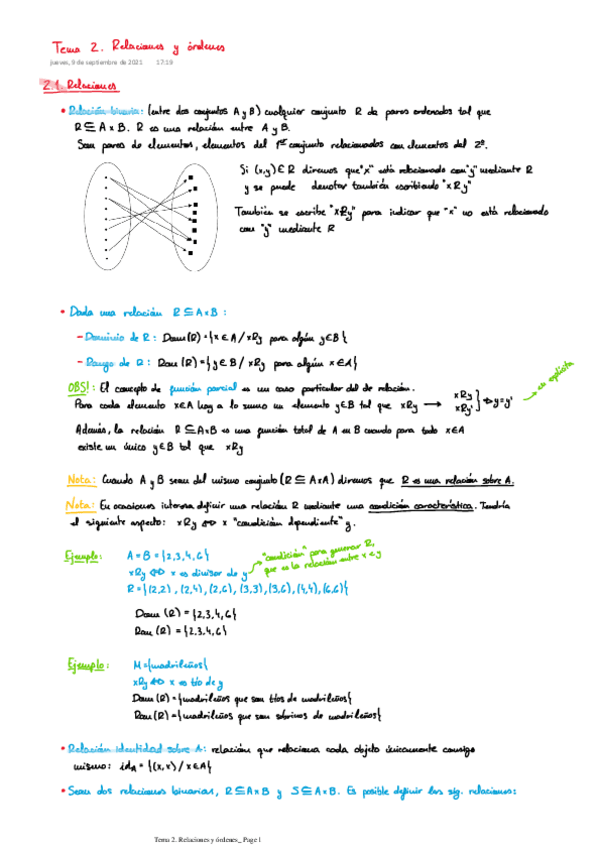 Tema 2. Relaciones y órdenes
jueves, 9 de septiembre de 2021 17:19
2.1. Relaciones
• Relación binaria: (entre dos conjuntos A y B) cualquier conjunto R de pares ordenados tal que
R ⊆ A×B. R es una relación entre A y B.
Son pares de elementos, elementos del 1er conjunto relacionados con elementos del 2º.
Si (x,y) ∈ R diremos que "x" está relacionado con "y" mediante R
y se puede denotar también escribiendo "xRy"
También se escribe "xR̸y" para indicar que "x" no está relacionado
con "y" mediante R
• Dada una relación R ⊆ A×B :
- Dominio de R : Dom(R) = {x ∈ A / xRy para algún y∈B}
- Rango de R : Ran(R) = {y ∈ B / xRy para algún x∈A}
OBS!: El concepto de función parcial es un caso particular del de relación.
Para cada elemento x∈A hay a lo sumo un elemento y∈B tal que xRy ⟶ xRy xRy' } ⇒ y=y' → es explícita
Además, la relación R ⊆ A×B es una función total de A en B cuando para todo x∈A
existe un único y∈B tal que xRy
Nota: Cuando A y B sean del mismo conjunto (R ⊆ A×A) diremos que R es una relación sobre A.
Nota: En ocasiones interesa definir una relación R mediante una condición característica. Tendría
el siguiente aspecto: xRy ⇔ x "condición dependiente" y.
Ejemplo: A = B = {2,3,4,6}
xRy ⇔ x es divisor de y → "condición" para generar R, que es la relación entre x e y
R = {(2,2), (2,4), (2,6), (3,3), (3,6), (4,4), (6,6)}
Dom (R) = {2,3,4,6}
Ran (R) = {2,3,4,6}
Ejemplo: M = {madrileños}
xRy ⇔ x es tío de y
Dom (R) = {madrileños que son tíos de madrileños}
Ran (R) = {madrileños que son sobrinos de madrileños}
• Relación identidad sobre A: relación que relaciona cada objeto únicamente consigo
mismo: id_A = {(x,x) / x∈A}
• Sean dos relaciones binarias, R ⊆ A×B y S ⊆ A×B. Es posible definir las sig. relaciones:
Tema 2. Relaciones y órdenes_ Page 1